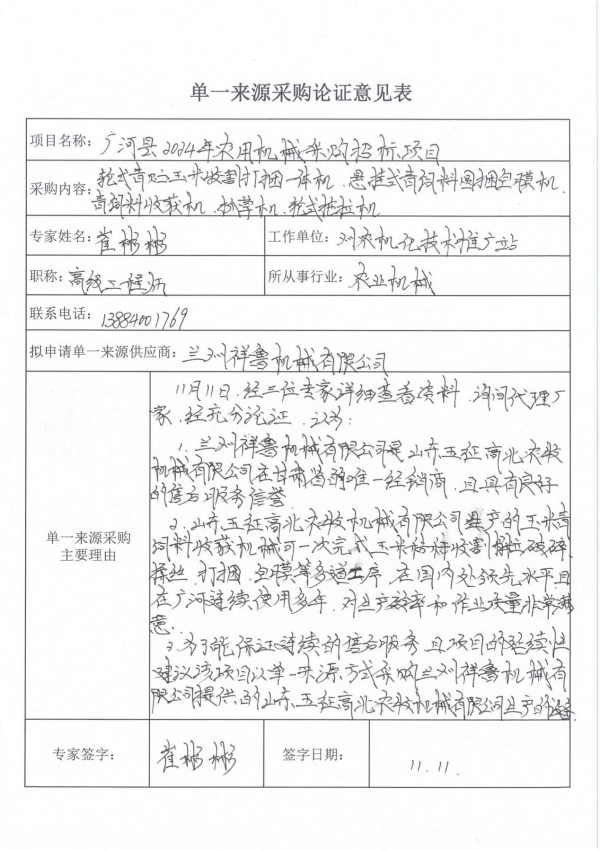 单一来源采购论证意见表
项目名称：广河县2024年农用机械采购招标项目
采购内容：轮式青贮玉米收割打捆一体机、悬挂式青饲料圆捆包膜机、
青饲料收获机、抄草机、轮式拖拉机
专家姓名：崔彬彬 工作单位：州农机化技术推广站
职称：高级工程师 所从事行业：农业机械
联系电话：13884001769
拟申请单一来源供应商：兰州祥鲁机械有限公司
单一来源采购
主要理由
11月11日，经三位专家详细查看资料，询问代理厂
家，经充分论证，认为：
1、兰州祥鲁机械有限公司是山东五征高北农牧
机械有限公司在甘肃省的唯一经销商，且具有良好
的售后服务信誉
2、山东五征高北农牧机械有限公司生产的玉米青
饲料收获机械可一次完成玉米秸秆收割、破碎
揉丝、打捆、包膜等多道工序，在国内处领先水平且
在广河连续使用多年，对生产效率和作业质量非常满
意
3、为了能保证连续的售后服务且项目的延续性
建议该项目以单一来源方式采购兰州祥鲁机械有
限公司提供的山东五征高北农牧机械有限公司生产的设备
专家签字： 崔彬彬 签字日期： 11.11.